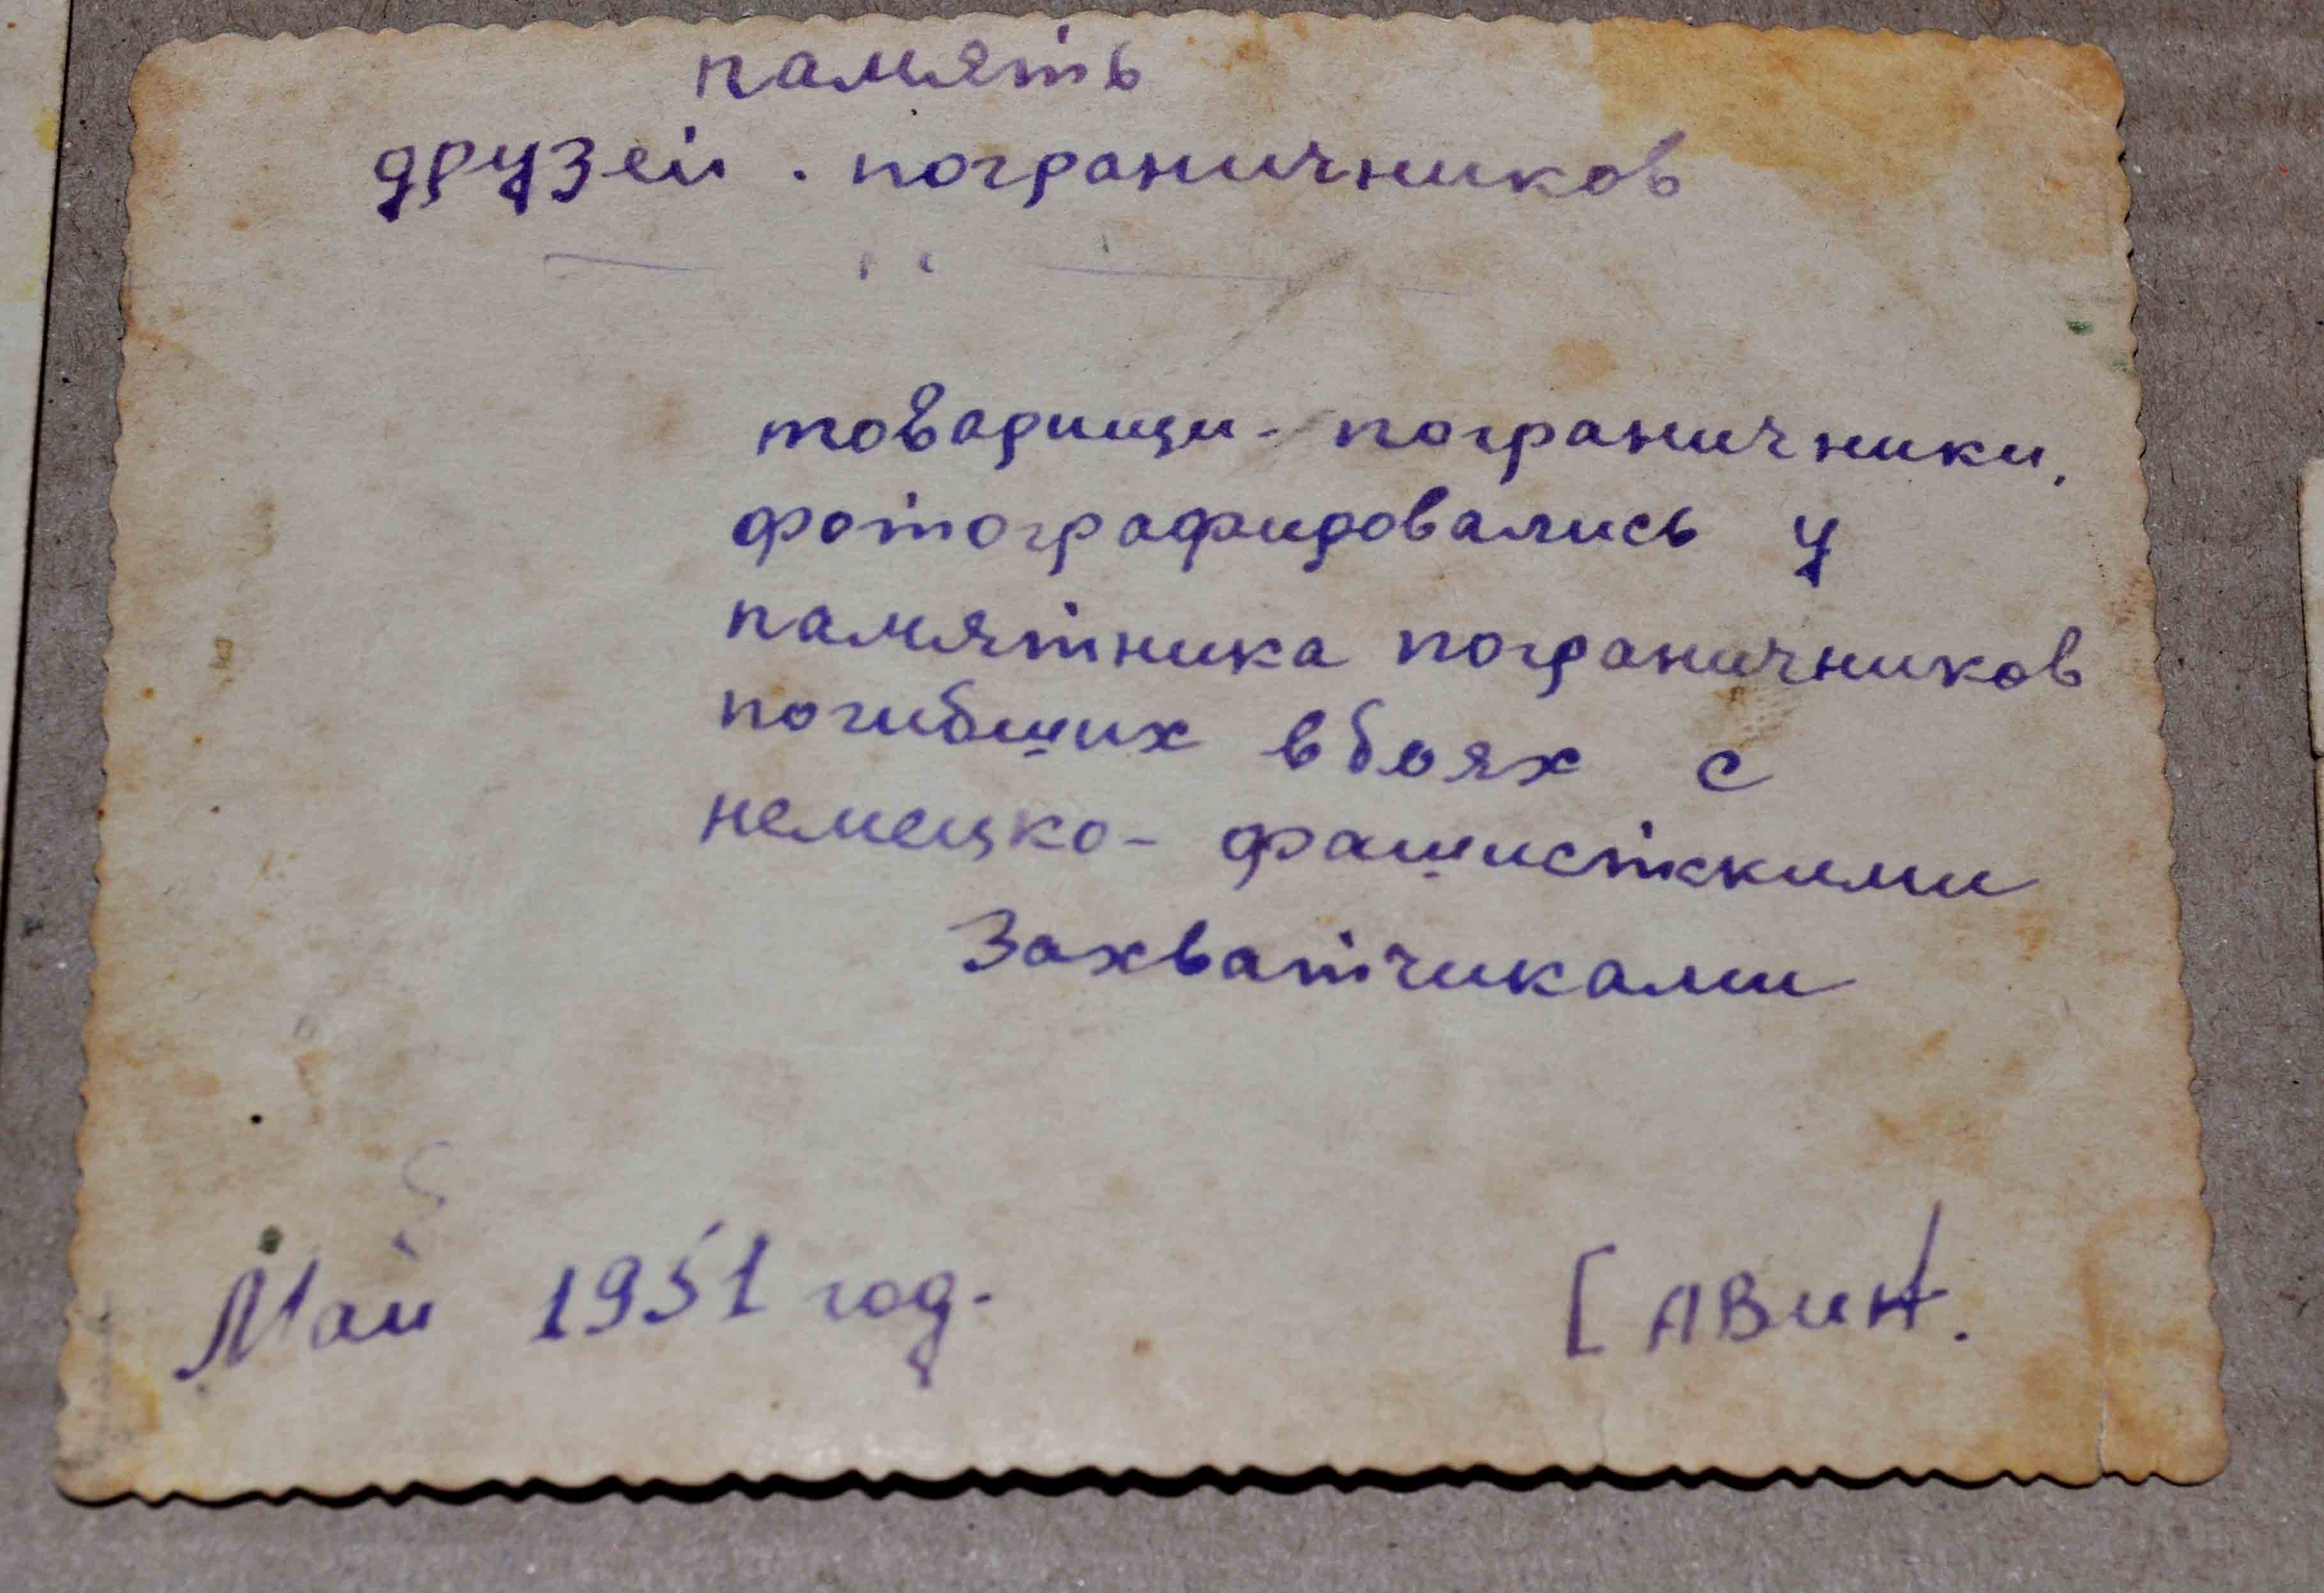 память
друзей. пограничников
товарищи - пограничники,
фотографировались у
памятника пограничников
погибших в боях с
немецко - фашисткими
Захватчиками
Май 1951 год.